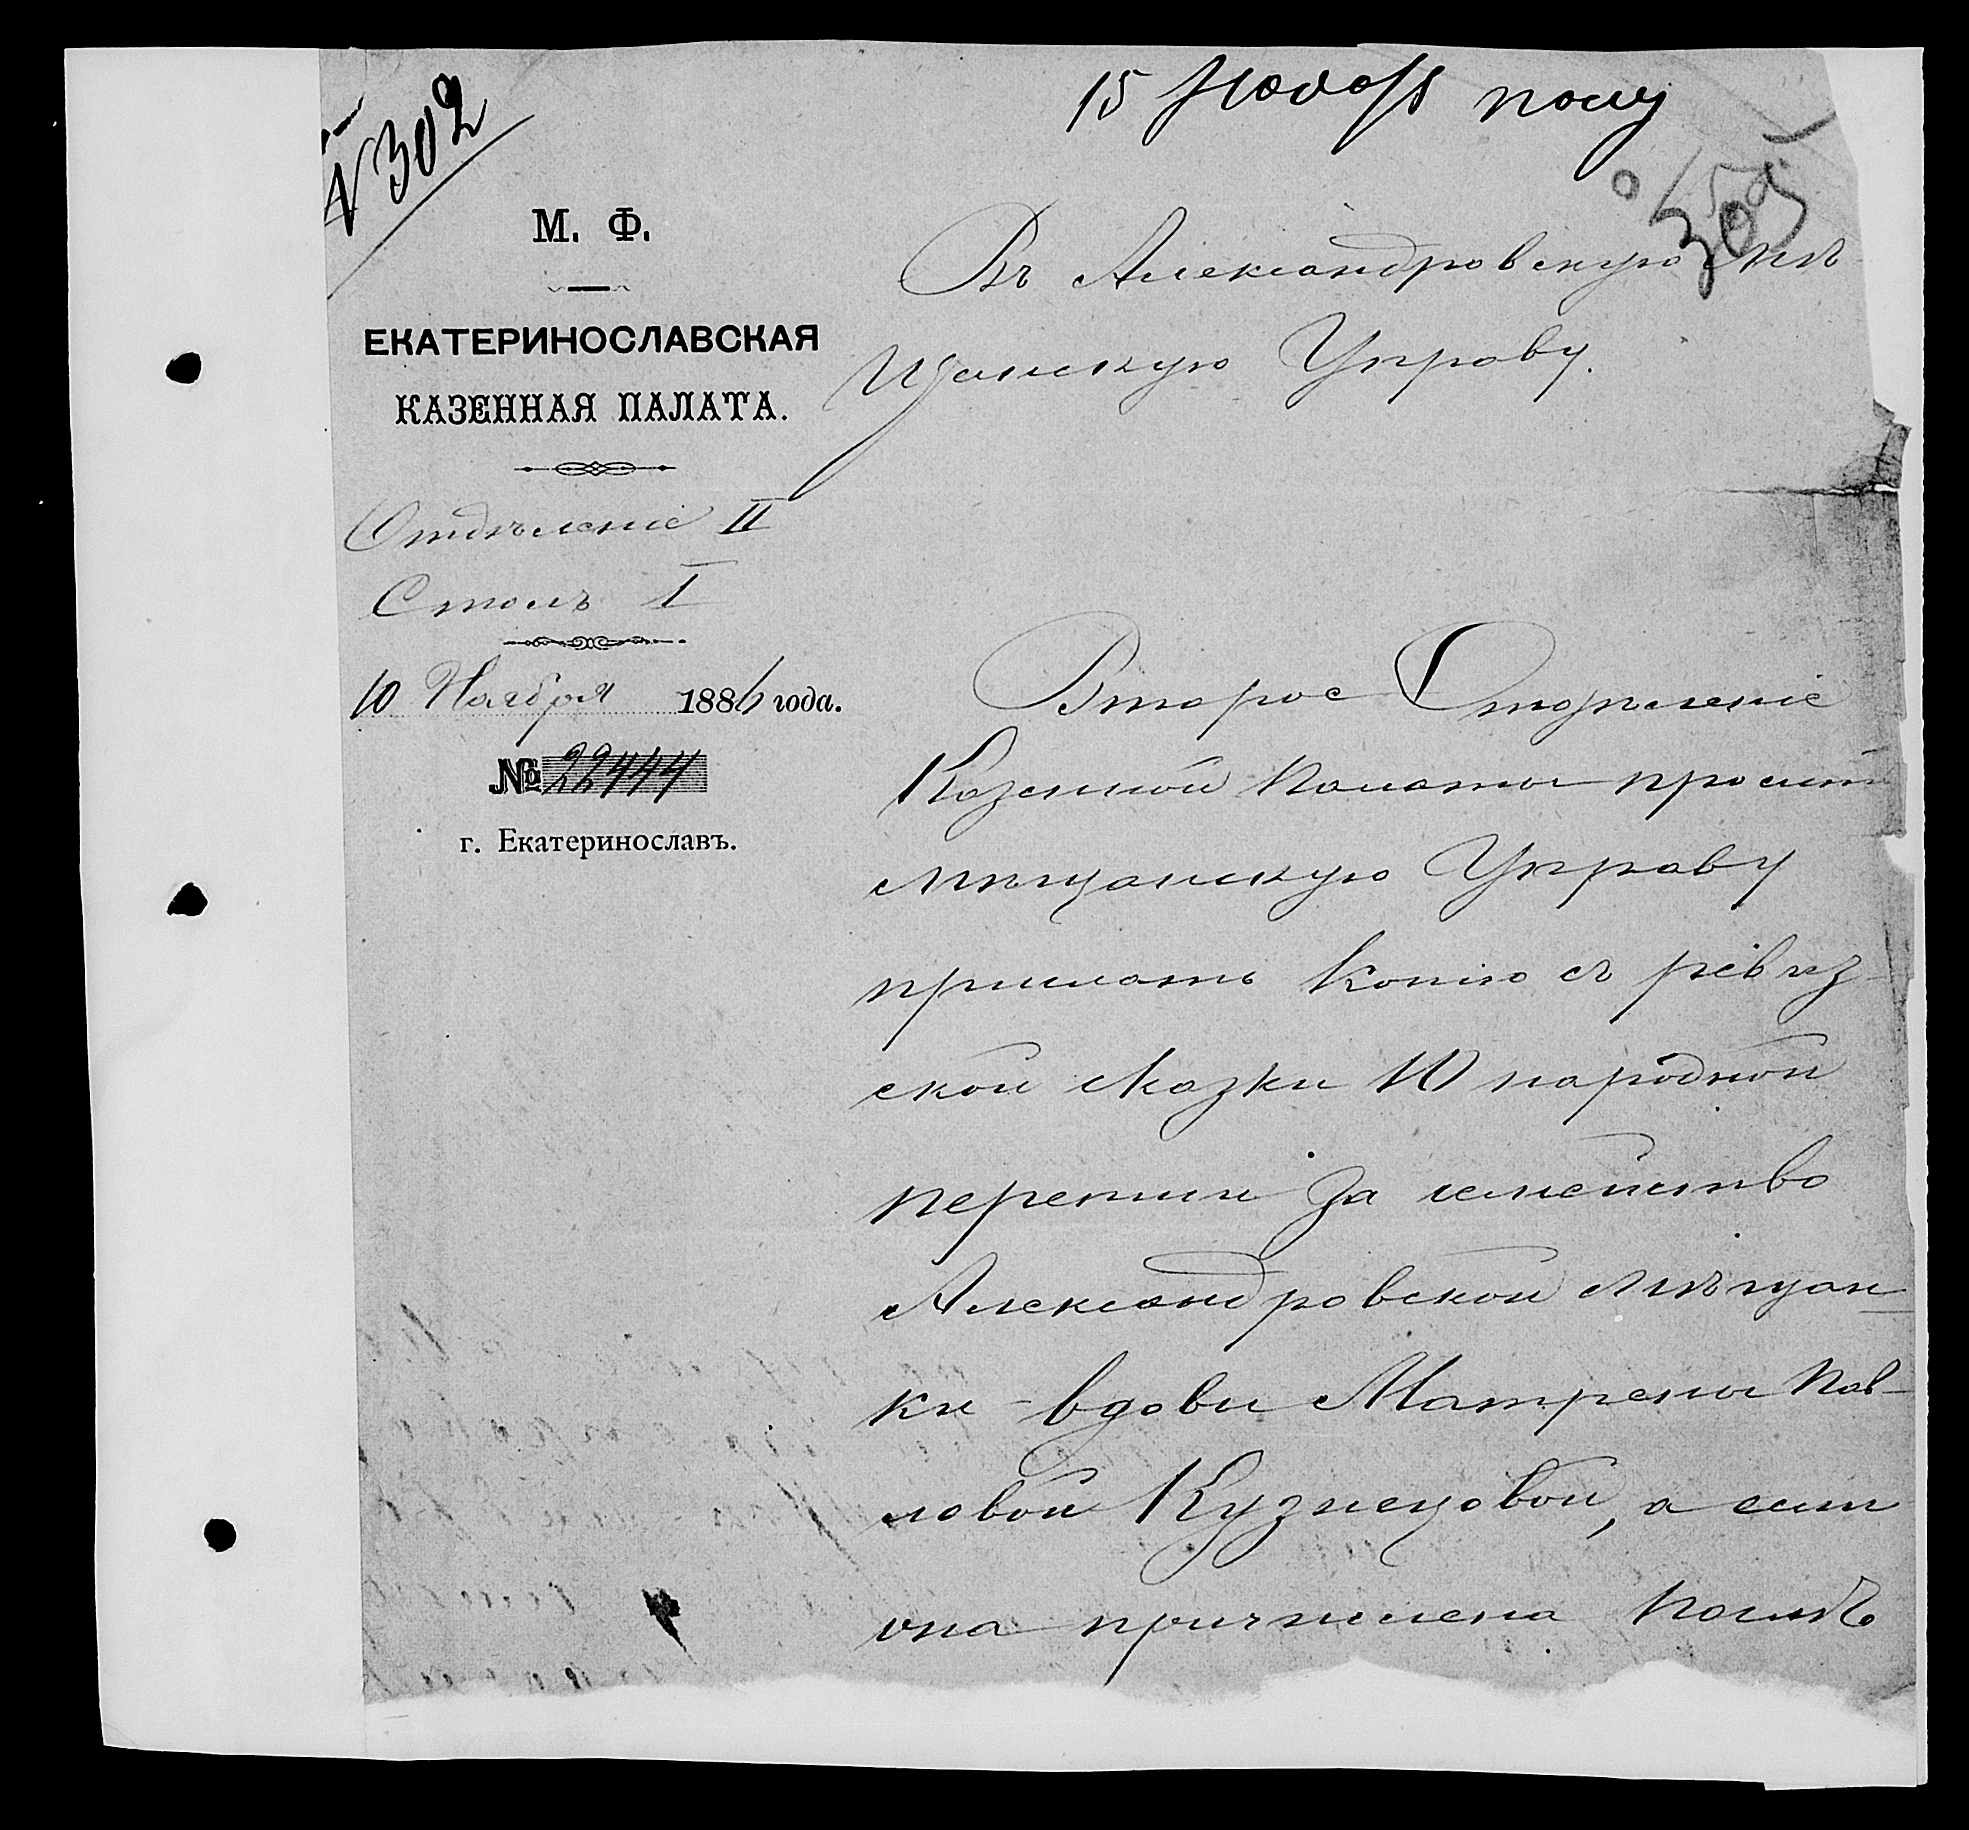 15 Нояб полу
№ 302
305
М. Ф.
ЕКАТЕРИНОСЛАВСКАЯ
КАЗЕННАЯ ПАЛАТА.
Отдѣленіе II
Столъ I
10 Ноября 1886 года.
№ 22444
г. Екатеринославъ.
Въ Александровскую Мѣ-
щанскую Управу.
Второе Отдѣленіе
Казенной Палаты проситъ
Мѣщанскую Управу
прислать копію съ ревиз-
ской сказки 10 народной
переписи за семейство
Александровской мѣщан-
ки - вдовы Матрены Пав-
ловой Кузнецовой, а если
она причислена послѣ